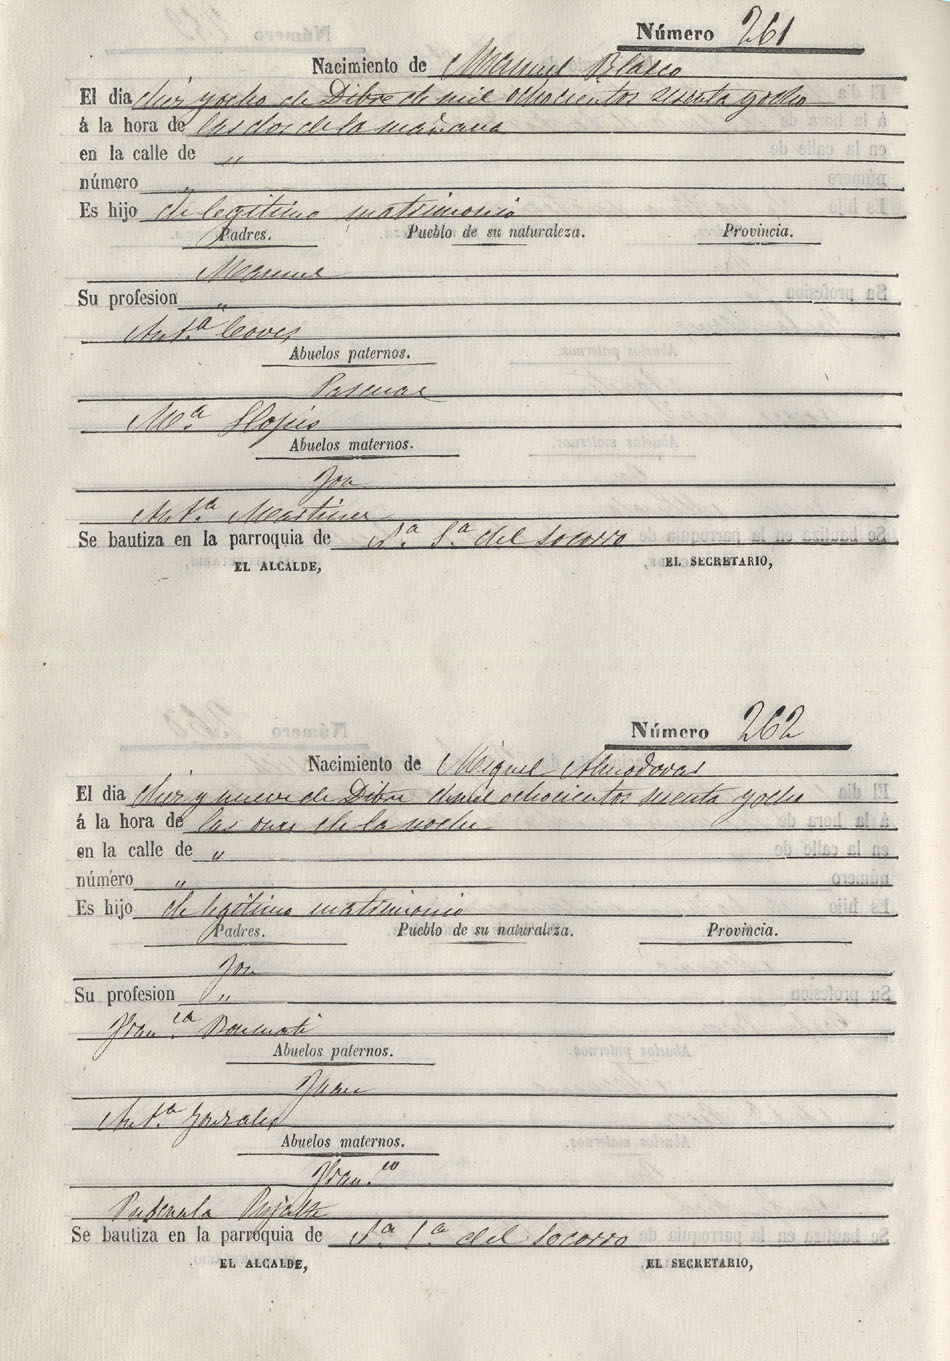 Número 261
Nacimiento de Manuel Blasco
El dia diez y ocho de Dibre de mil ochocientos sesenta y ocho
á la hora de las dos de la mañana
en la calle de "
número "
Es hijo de legitimo matrimonio
Padres. Pueblo de su naturaleza. Provincia.
Manuel
Su profesion "
Ant.ª Coves
Abuelos paternos.
Pascual
M.ª Llopis
Abuelos maternos.
Jose
Ant.ª Martinez
Se bautiza en la parroquia de N.ª S.ª del Socorro
EL ALCALDE, EL SECRETARIO,
Número 262
Nacimiento de Miguel Almodovar
El dia diez y nueve de Dibre de mil ochocientos sesenta y ocho
á la hora de las once de la noche
en la calle de "
número "
Es hijo de legitimo matrimonio
Padres. Pueblo de su naturaleza. Provincia.
Jose
Su profesion "
Fran.ca
Abuelos paternos.
Juan
Ant.ª Gonzalez
Abuelos maternos.
Fran.co
Pascuala Pujalte
Se bautiza en la parroquia de N.ª S.ª del Socorro
EL ALCALDE, EL SECRETARIO,